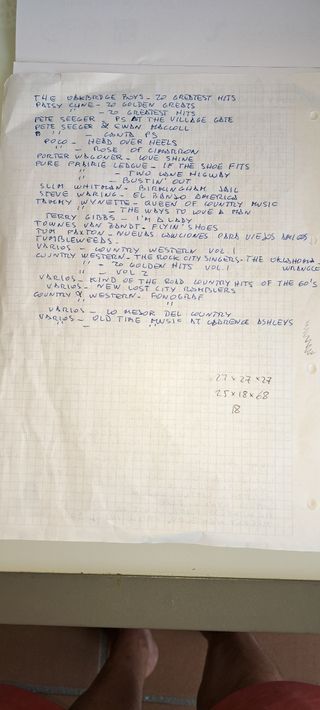 THE OAKBRIDGE BOYS - 20 GREATEST HITS
PATSY CLINE - 20 GOLDEN GREATS
" - 20 GREATEST HITS
PETE SEEGER - PS AT THE VILLAGE GATE
PETE SEEGER & EWAN MACCOLL
" " - CANTA PS
POCO - HEAD OVER HEELS
" ROSE OF CIMARRON
PORTER WAGONER - LOVE SHINE
PURE PRAIRIE LEAGUE - IF THE SHOE FITS
" - TWO LANE HIGWAY
" - BUSTIN' OUT
SLIM WHITMAN - BIRMINGHAM JAIL
STEVE WARING - EL BANJO AMERICA
TAMMY WYNETTE - QUEEN OF COUNTRY MUSIC
" - THE WAYS TO LOVE A MAN
TERRY GIBBS - I'M A LADY
TOWNES VAN ZANDT - FLYIN' SHOES
TOM PAXTON - NUEVAS CANCIONES PARA VIEJOS AMIGOS
TUMBLEWEEDS
VARIOS - COUNTRY WESTERN VOL 1
COUNTRY WESTERN - THE ROCK CITY SINGERS - THE OKLAHOMA WRANGLE
" - 20 GOLDEN HITS VOL. 1
" " - VOL 2
VARIOS - KIND OF THE ROAD COUNTRY HITS OF THE 60'S
VARIOS - NEW LOST CITY RAMBLERS
COUNTRY & WESTERN - FONOGRAF
" "
VARIOS - LO MEJOR DEL COUNTRY
VARIOS - OLD TIME MUSIC AT CLARENCE ASHLEYS
" -
27 x 27 x 27
25 x 18 x 68
18